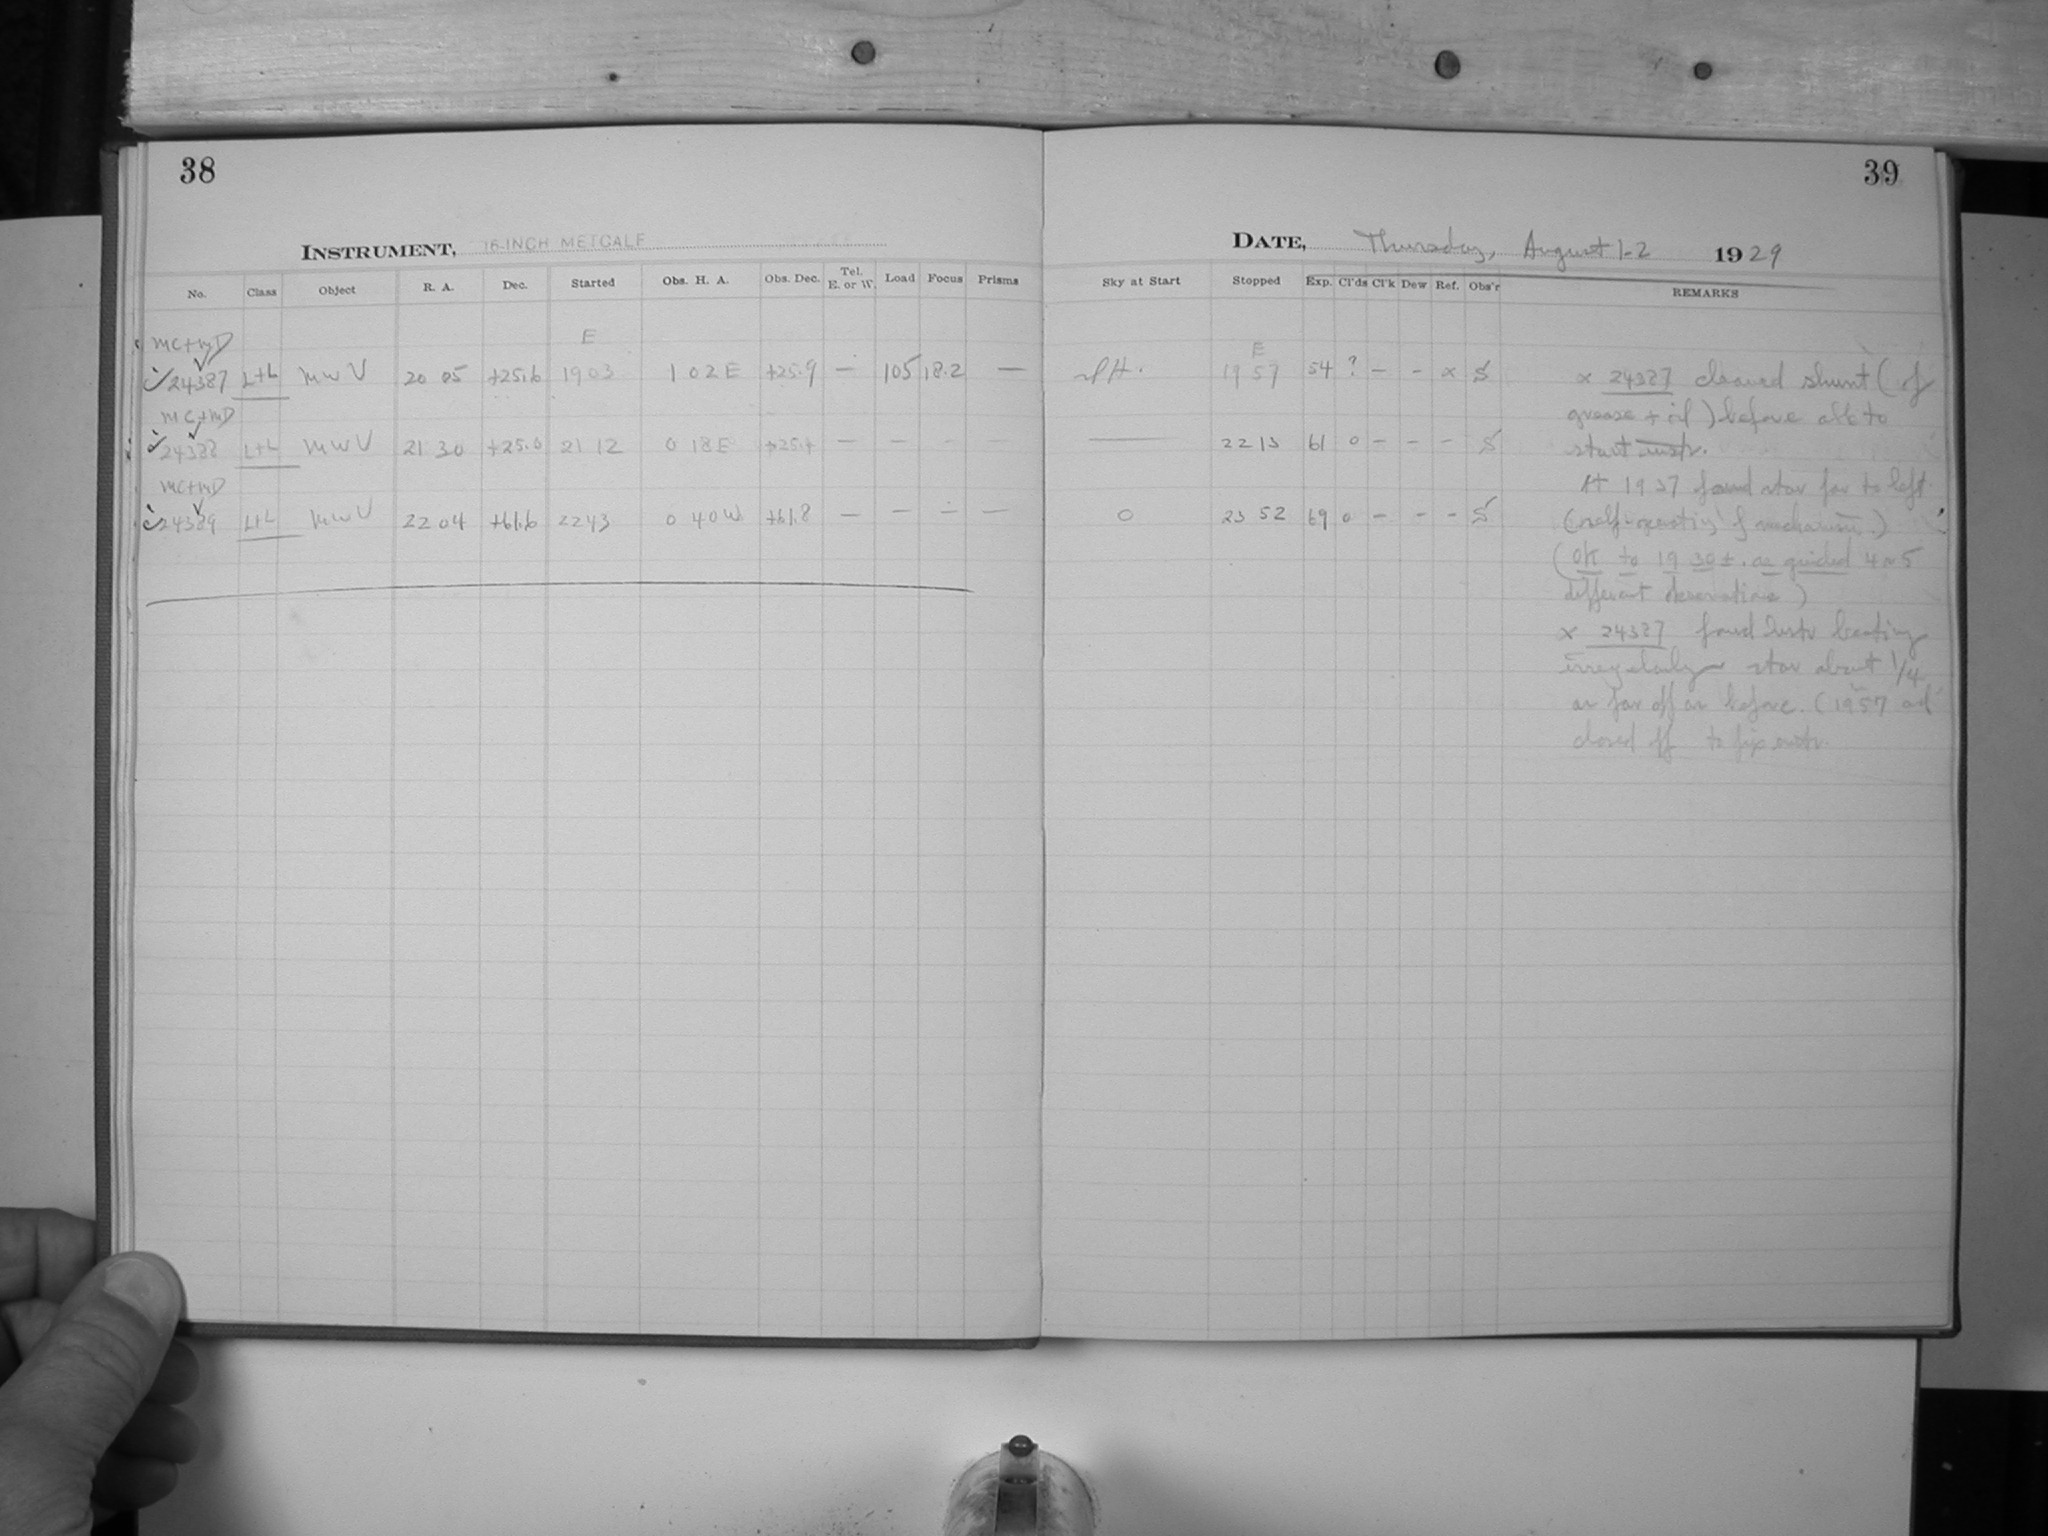 38
39
INSTRUMENT, 16-INCH METCALF
DATE, Thursday, August 1-2 1929
No. Class Object R. A. Dec. Started Obs. H. A. Obs. Dec. Tel. E. or W. Load Focus Prisms Sky at Start Stopped Exp. Cl'ds Cl'k Dew Ref. Obs'r REMARKS
MC+MD E E
24387 L+L MWV 20 05 +25.6 1903 1 02 E +25.9 — 105 18.2 — 1957 54 ? — - x S
MC+MD
24388 L+L MWV 21 30 +25.0 21 12 0 18 E +25.4 — — - — 22 13 61 0 — — - S
MC+MD
24389 L+L MWV 22 04 +61.6 2243 0 40 W +61.8 — — — — 0 23 52 69 0 — - - S
x 24387 cleaned shunt (of
grease + oil) before able to
start instr.
At 1937 found star far to left
(self-operating of mechanism.)
(OK to 19 30 ±. as guided 4 or 5
different observations)
x 24387 found instr beating
irregularly star about 1/4
as far off as before. (1957 and
closed off to fix instr.